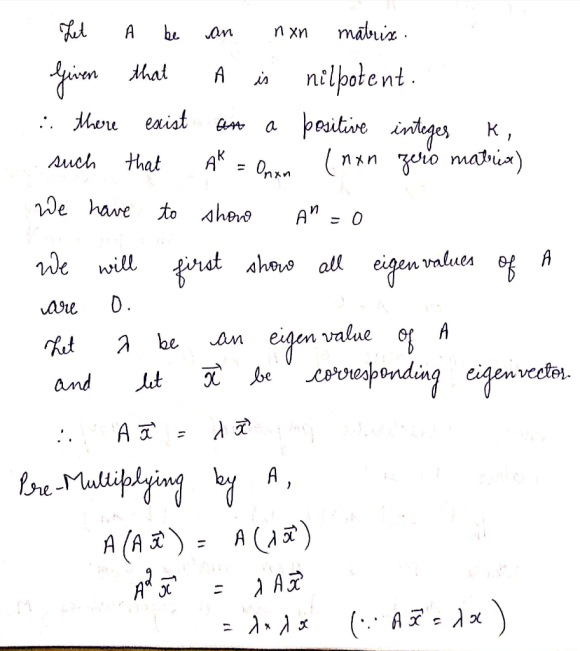 Let A be an n×n matrix.
Given that A is nilpotent.
∴ there exist an a positive integer K,
such that A^K = 0_{n×n} (n×n zero matrix)
We have to show A^n = 0
We will first show all eigenvalues of A
are 0.
Let λ be an eigen value of A
and let x⃗ be corresponding eigenvector.
∴ A x⃗ = λ x⃗
Pre-Multiplying by A,
A(A x⃗) = A(λ x⃗)
A² x⃗ = λ A x⃗
= λ × λ x (∵ A x⃗ = λ x)